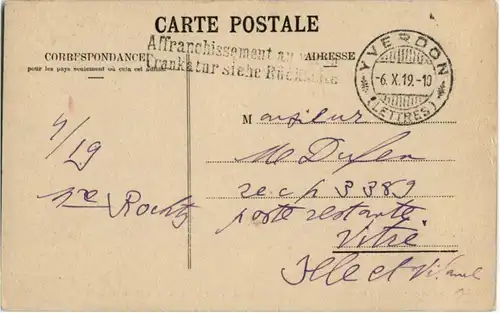 CARTE POSTALE
CORRESPONDANCE
pour les pays seulement où cela est admis
Affranchissement au
Frankatur siehe Rückseite
ADRESSE
YVERDON
-6.X.19.-10
(LETTRES)
Monsieur
M Dufen
3389
poste restante
Vitré
Ille et Vilaine
4/19
Rochy